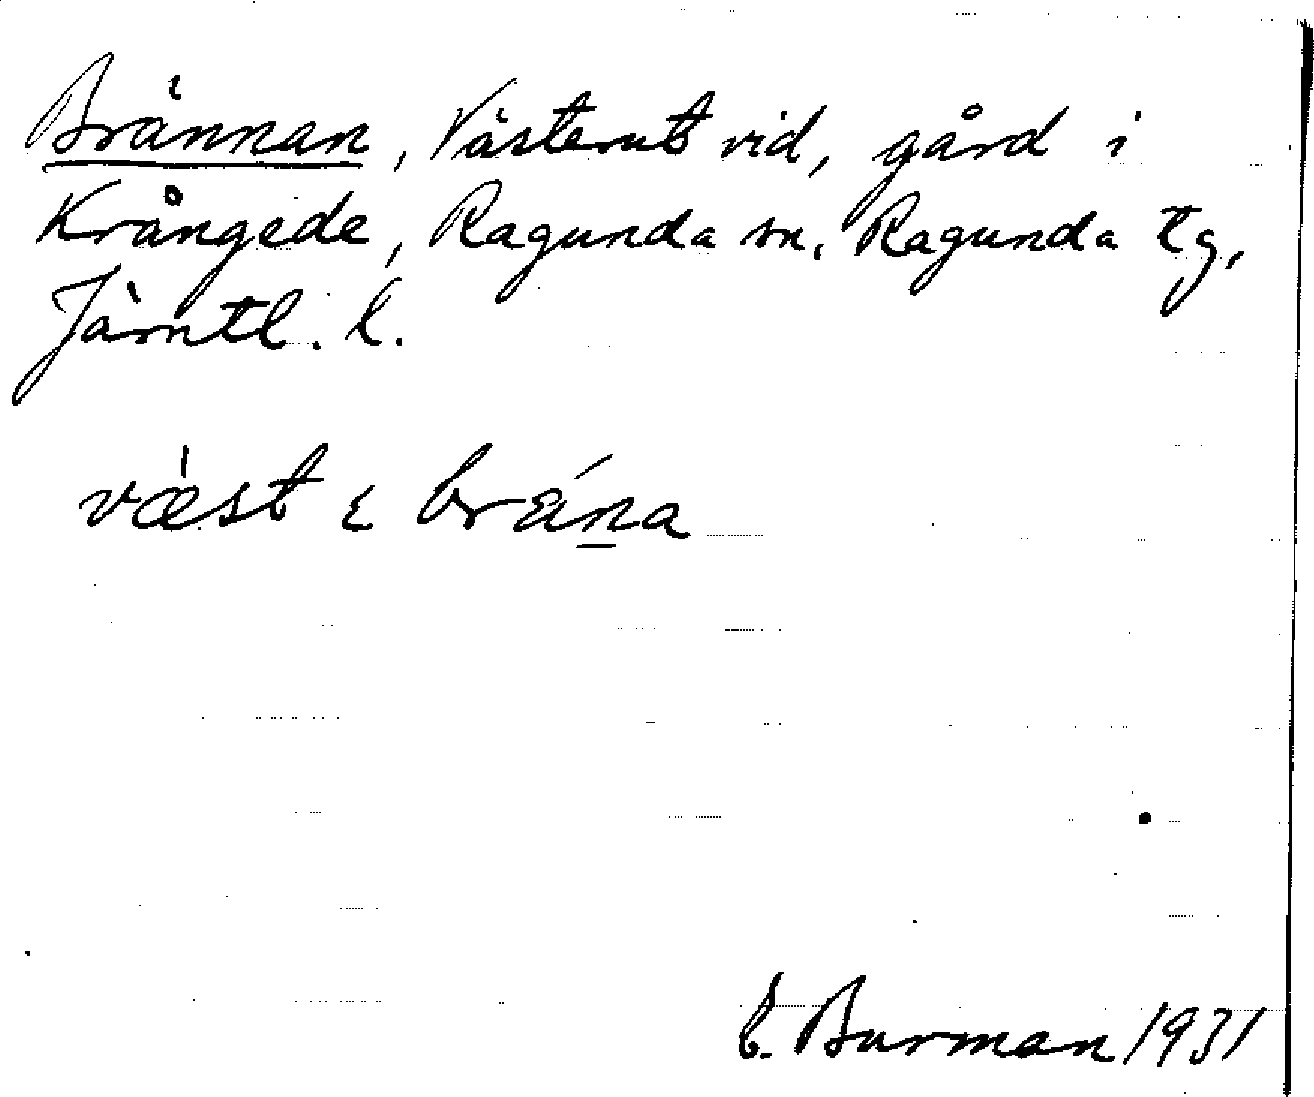 Brännan, Västerut vid, gård i
Krångede, Ragunda sn. Ragunda tg,
Jämtl. l.
væ̍st ɛ brǽn̲a
E. Burman 1931